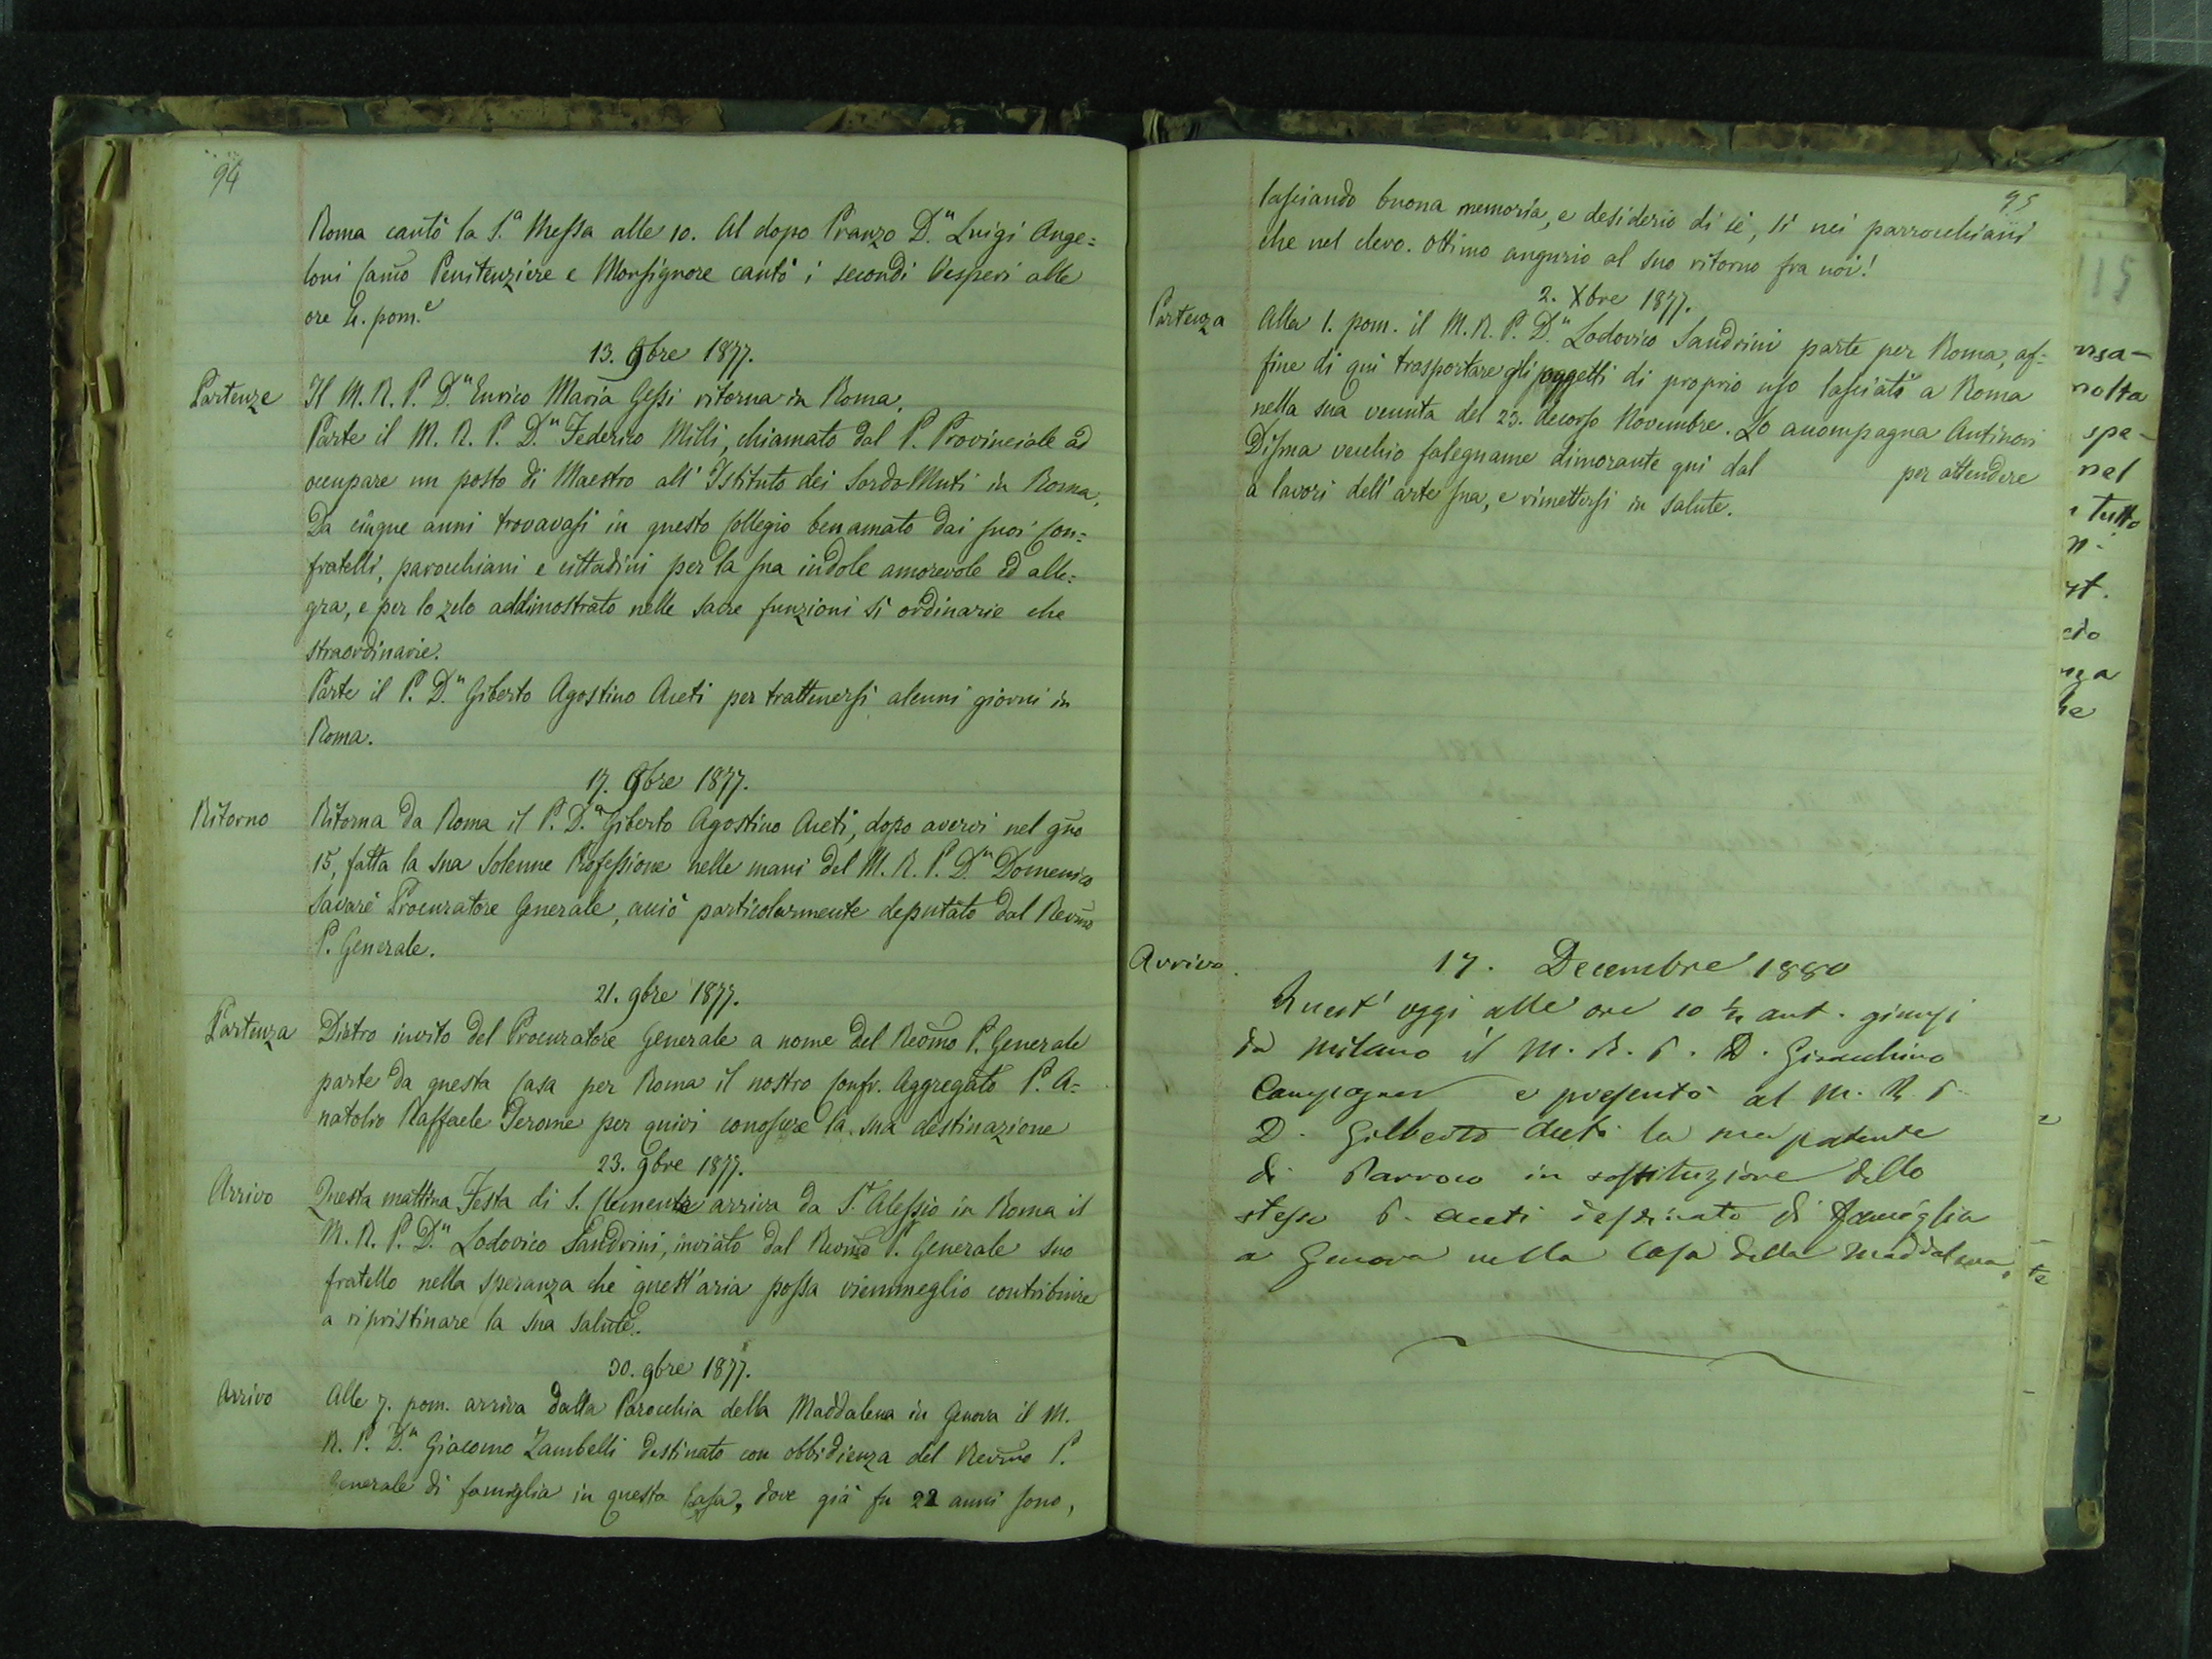 94
Roma cantò la S.a Messa alle 10. Al dopo Pranzo D.n Luigi Ange=
loni Camo Penitenziere e Monsignore cantò i secondi Vesperi alle
ore 4. pom.e
13. 9bre 1877.
Partenze
Il M. R. P. D.n Enrico Maria Gessi ritorna in Roma.
Parte il M. R. P. D.n Federico Milli, chiamato dal P. Provinciale ad
occupare un posto di Maestro all' Istituto dei Sordo Muti in Roma.
Da cinque anni trovavasi in questo Collegio benamato dai suoi Con=
fratelli, parocchiani e cittadini per la sua indole amorevole ed alle=
gra, e per lo zelo addimostrato nelle sacre funzioni sì ordinarie che
straordinarie.
Parte il P. D.n Giberto Agostino Aceti per trattenersi alcuni giorni in
Roma.
17. 9bre 1877.
Ritorno
Ritorna da Roma il P. D.n Giberto Agostino Aceti, dopo avervi nel gno
15, fatta la sua Solenne Professione nelle mani del M. R. P. D.n Domenico
Savarè Procuratore Generale, acciò particolarmente deputato dal Revmo
P. Generale.
21. 9bre 1877.
Partenza
Dietro invito del Procuratore Generale a nome del Revmo P. Generale
parte da questa Casa per Roma il nostro Confr. Aggregato P. A=
natolio Raffaele Perome per quivi conoscere la sua destinazione
23. 9bre 1877.
Arrivo
Questa mattina Festa di S. Clemente arriva da S.t Alessio in Roma il
M. R. P. D.n Lodovico Sandrini, inviato dal Revmo P. Generale suo
fratello nella speranza che quest'aria possa viemmeglio contribuire
a ripristinare la sua salute.
30. 9bre 1877.
Arrivo
Alle 7. pom. arriva dalla Parocchia della Maddalena in Genova il M.
R. P. D.n Giacomo Zambelli destinato con obbidienza del Revmo P.
Generale di famiglia in questa Casa, dove già fu 22 anni sono,
95
lasciando buona memoria, e desiderio di sè, sì nei parrocchiani
che nel clero. Ottimo augurio al suo ritorno fra noi!
2. Xbre 1877.
Partenza
Alla 1. pom. il M. R. P. D.n Lodovico Sandrini parte per Roma, af=
fine di qui trasportare gli oggetti di proprio uso lasciati a Roma
nella sua venuta del 23. decorso Novembre. Lo accompagna Antinori
Disma vecchio falegname dimorante qui dal per attendere
a lavori dell' arte sua, e rimettersi in salute.
Arrivo.
17. Decembre 1880
Quest' oggi alle ore 10 ½ ant. giunsi
da Milano il M. R. P. D. Gioacchino
Campagner e presentò al M. R. P.
D. Gilberto Aceti la sua patente
di Parroco in sostituzione dello
stesso P. Aceti destinato di famiglia
a Genova nella Casa della Maddalena.
115
nolta
spe-
nel
tutto